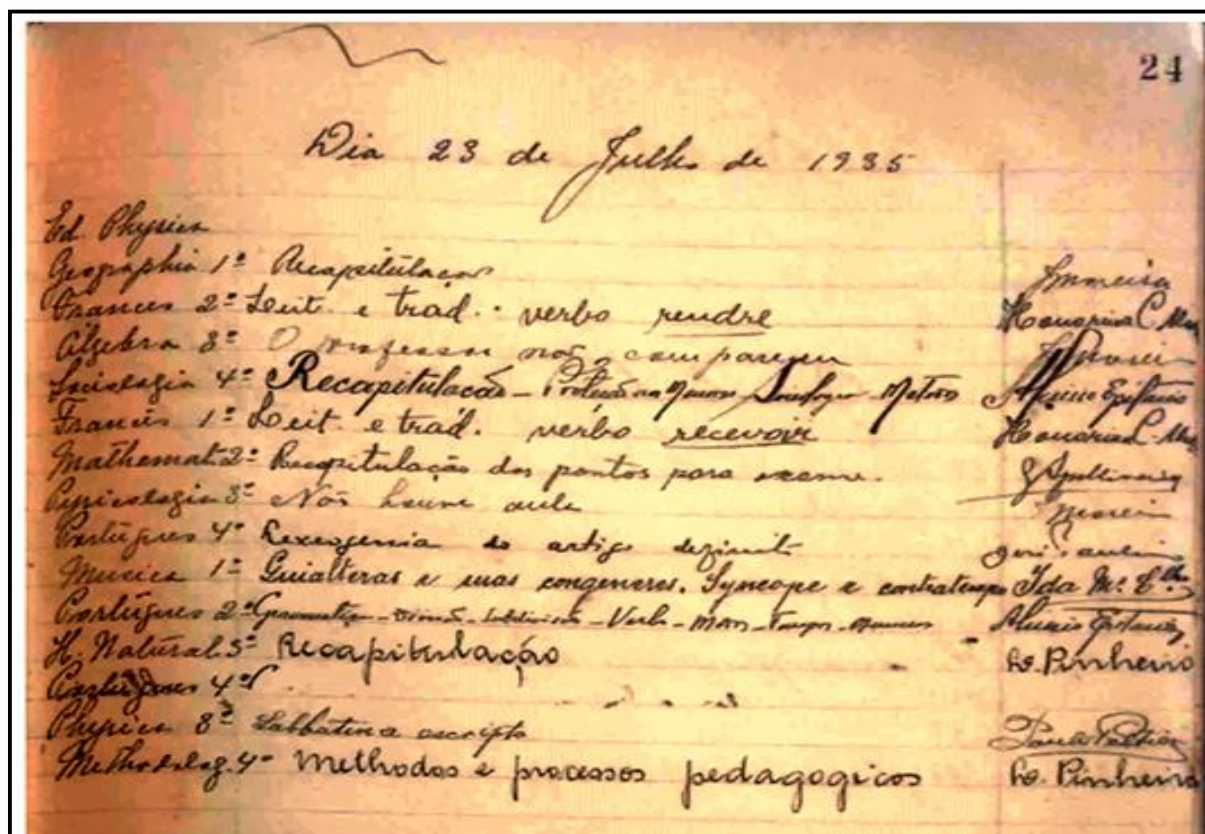 24
Dia 23 de Julho de 1935
Ed. Physica
Geographia 1º Recapitulação
Francês 2º Leit. e trad. . verbo rendre Honorina C.
Algebra 3º O professor não compareceu
Sociologia 4º Recapitulação - Epitacio
Francês 1º Leit. e trad. verbo recevoir Honorina C.
Mathemat. 2º Recapitulação dos pontos para exame.
Psycologia 3º Não houve aula
Portúgues 4º Lexeogenia do artigo
Musica 1º Quialteras e suas congeneres. Syncope e contratempo Ida Mª
Portúgues 2º Grammatica - Divisão - Subdivisão - Verbo - Modos - Tempos -
H. Natural 3º Recapitulação W. Pinheiro
Portúgues 4º
Physica 3º Sabbatina escripta
Methodolog. 4º Methodos e processos pedagogicos W. Pinheiro